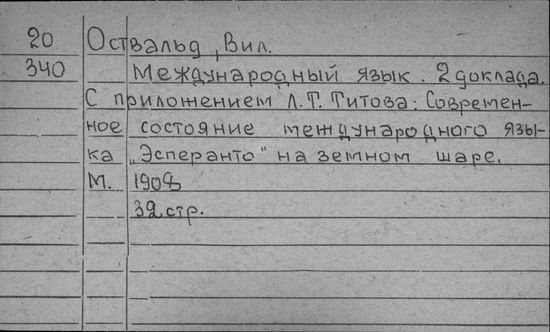 20 Оствальд, Вил.
340 Международный язык. 2 доклада.
С приложением Л.Т. Титова: Современ-
ное состояние международного язы-
ка „Эсперанто" на земном шаре.
М. 1908
32 стр.